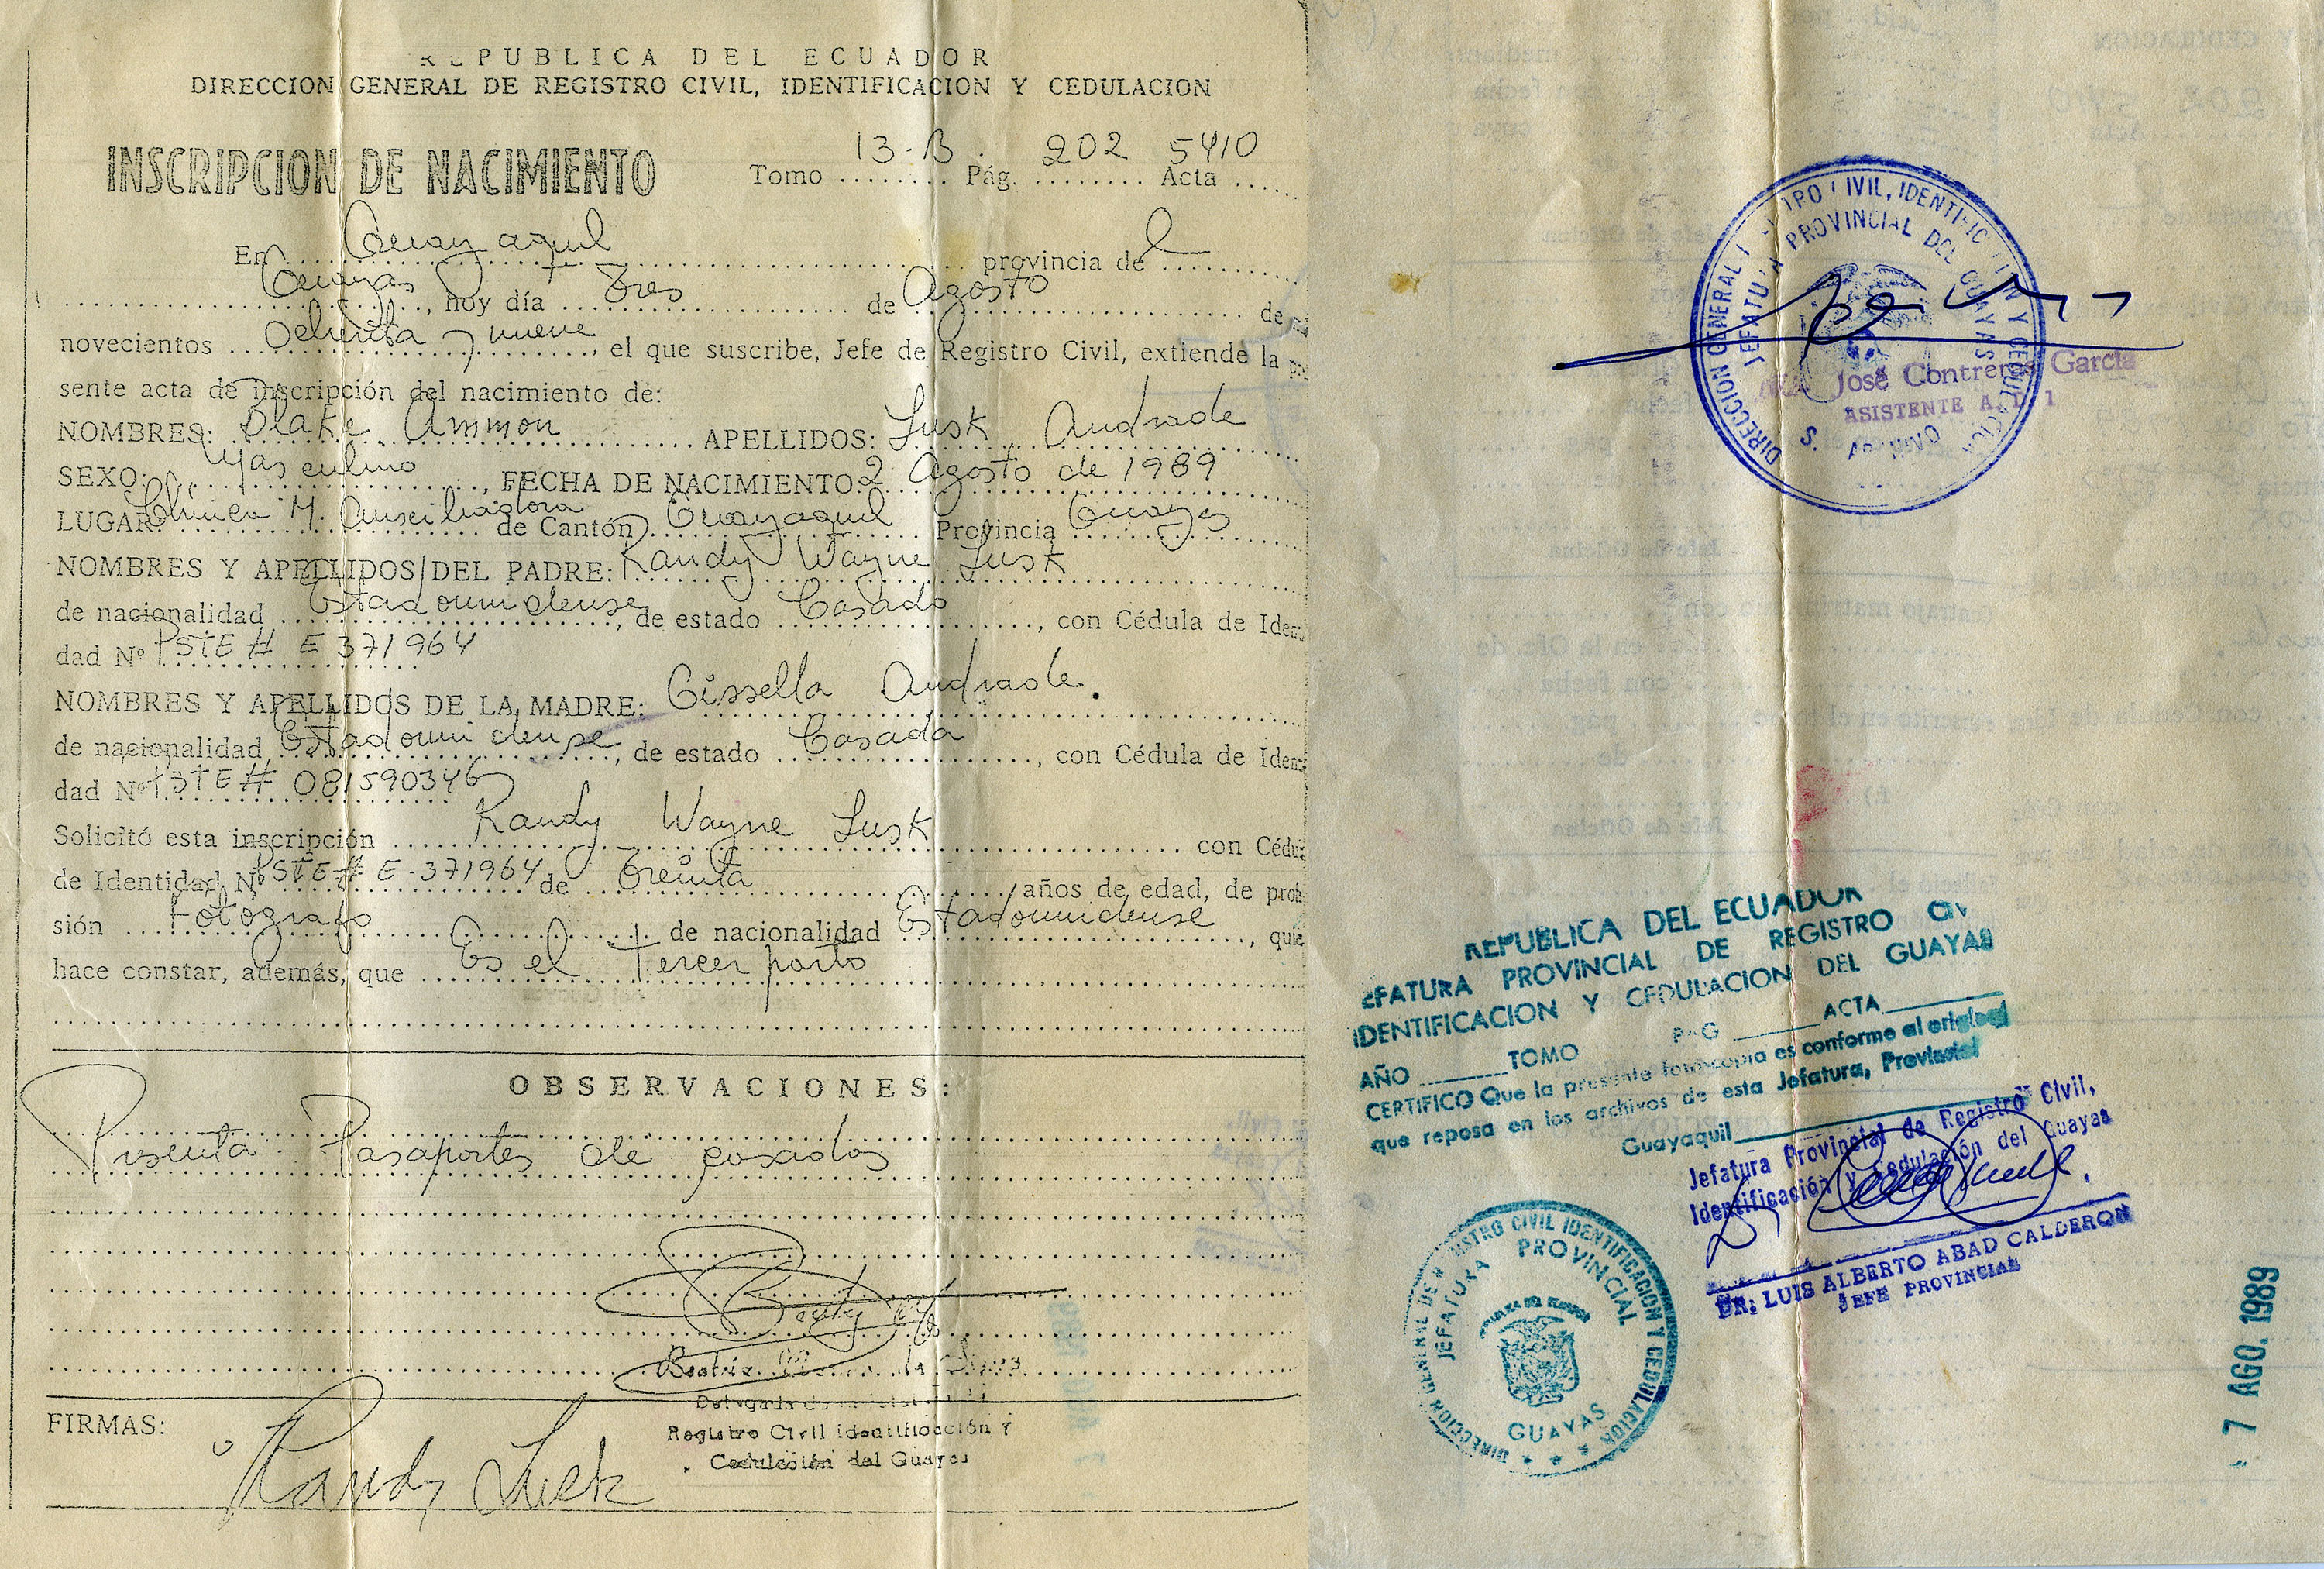 REPUBLICA DEL ECUADOR
DIRECCION GENERAL DE REGISTRO CIVIL, IDENTIFICACION Y CEDULACION
INSCRIPCION DE NACIMIENTO
Tomo 13-B Pág. 202 Acta 5410
En Guayaquil provincia del
Guayas, hoy día Tres de Agosto de
novecientos Ochenta y nueve, el que suscribe, Jefe de Registro Civil, extiende la
sente acta de inscripción del nacimiento de:
NOMBRES: Blake Ammon APELLIDOS: Lusk Andrade
SEXO: Masculino, FECHA DE NACIMIENTO: 2 Agosto de 1989
LUGAR: Clinica M. Auxiliadora de Cantón Guayaquil Provincia Guayas
NOMBRES Y APELLIDOS DEL PADRE: Randy Wayne Lusk
de nacionalidad Estadounidense, de estado Casado, con Cédula de Iden
dad Nº PSTE # E 371964
NOMBRES Y APELLIDOS DE LA MADRE: Gissella Andrade.
de nacionalidad Estadounidense, de estado Casada, con Cédula de Iden
dad Nº PSTE # 081590346
Solicitó esta inscripción Randy Wayne Lusk con Cédu
de Identidad Nº PSTE # E-371964 de Treinta años de edad, de prof
sión Fotógrafo de nacionalidad Estadounidense, quie
hace constar, además, que Es el tercer parto
OBSERVACIONES:
Presenta Pasaportes de casados
Registro Civil Identificación y
Cedulación del Guayas
FIRMAS:
Randy Lusk
DIRECCION GENERAL REGISTRO CIVIL, IDENTIFICACION Y CEDULACION
JEFATURA PROVINCIAL DEL GUAYAS
José Contreras García
ASISTENTE A. D. 1
S. ARCHIVO
REPUBLICA DEL ECUADOR
EFATURA PROVINCIAL DE REGISTRO CIV
IDENTIFICACION Y CEDULACION DEL GUAYAS
AÑO TOMO PAG ACTA
CERTIFICO Que la presente fotocopia es conforme al original
que reposa en los archivos de esta Jefatura, Provincial
Guayaquil
Jefatura Provincial de Registro Civil,
Identificación y Cedulación del Guayas
DR: LUIS ALBERTO ABAD CALDERON
JEFE PROVINCIAL
DIRECCION GENERAL DE REGISTRO CIVIL IDENTIFICACION Y CEDULACION
JEFATURA PROVINCIAL
GUAYAS
7 AGO. 1989